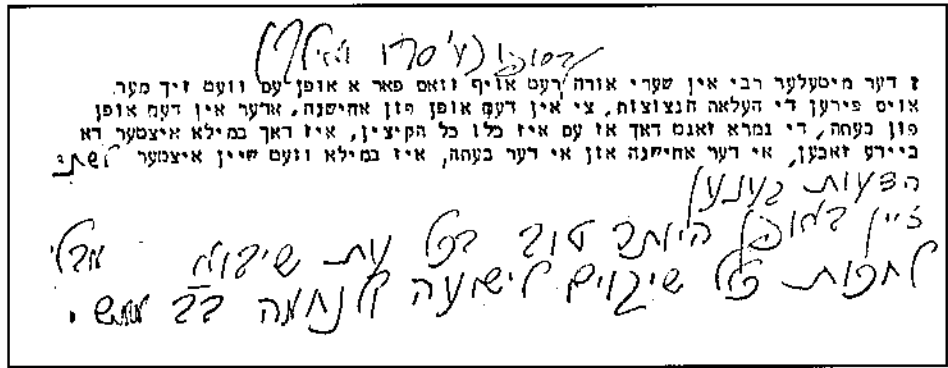 בסופו (ע׳ סח ואילך)
ז דער מיטעלער רבי אין שערי אורה רעט אויף וואס פאר א אופן עס וועט זיך מער
אויס פירען די העלאה הנצוצות, צי אין דעם אופן פון אחישנה, אדער אין דעם אופן
פון בעתה, די גמרא זאגט דאך אז עס איז כלו כל הקיצין, איז דאך במילא איצטער דא
ביידע זאכען, אי דער אחישנה און אי דער בעתה, איז במילא וועט שיין איצטער לשתי
הדעות בענען
זיין באופן היותר טוב בכל עת שיבוא
לחכות כלל שיקוים לישועה ולנחמה בב ממש.